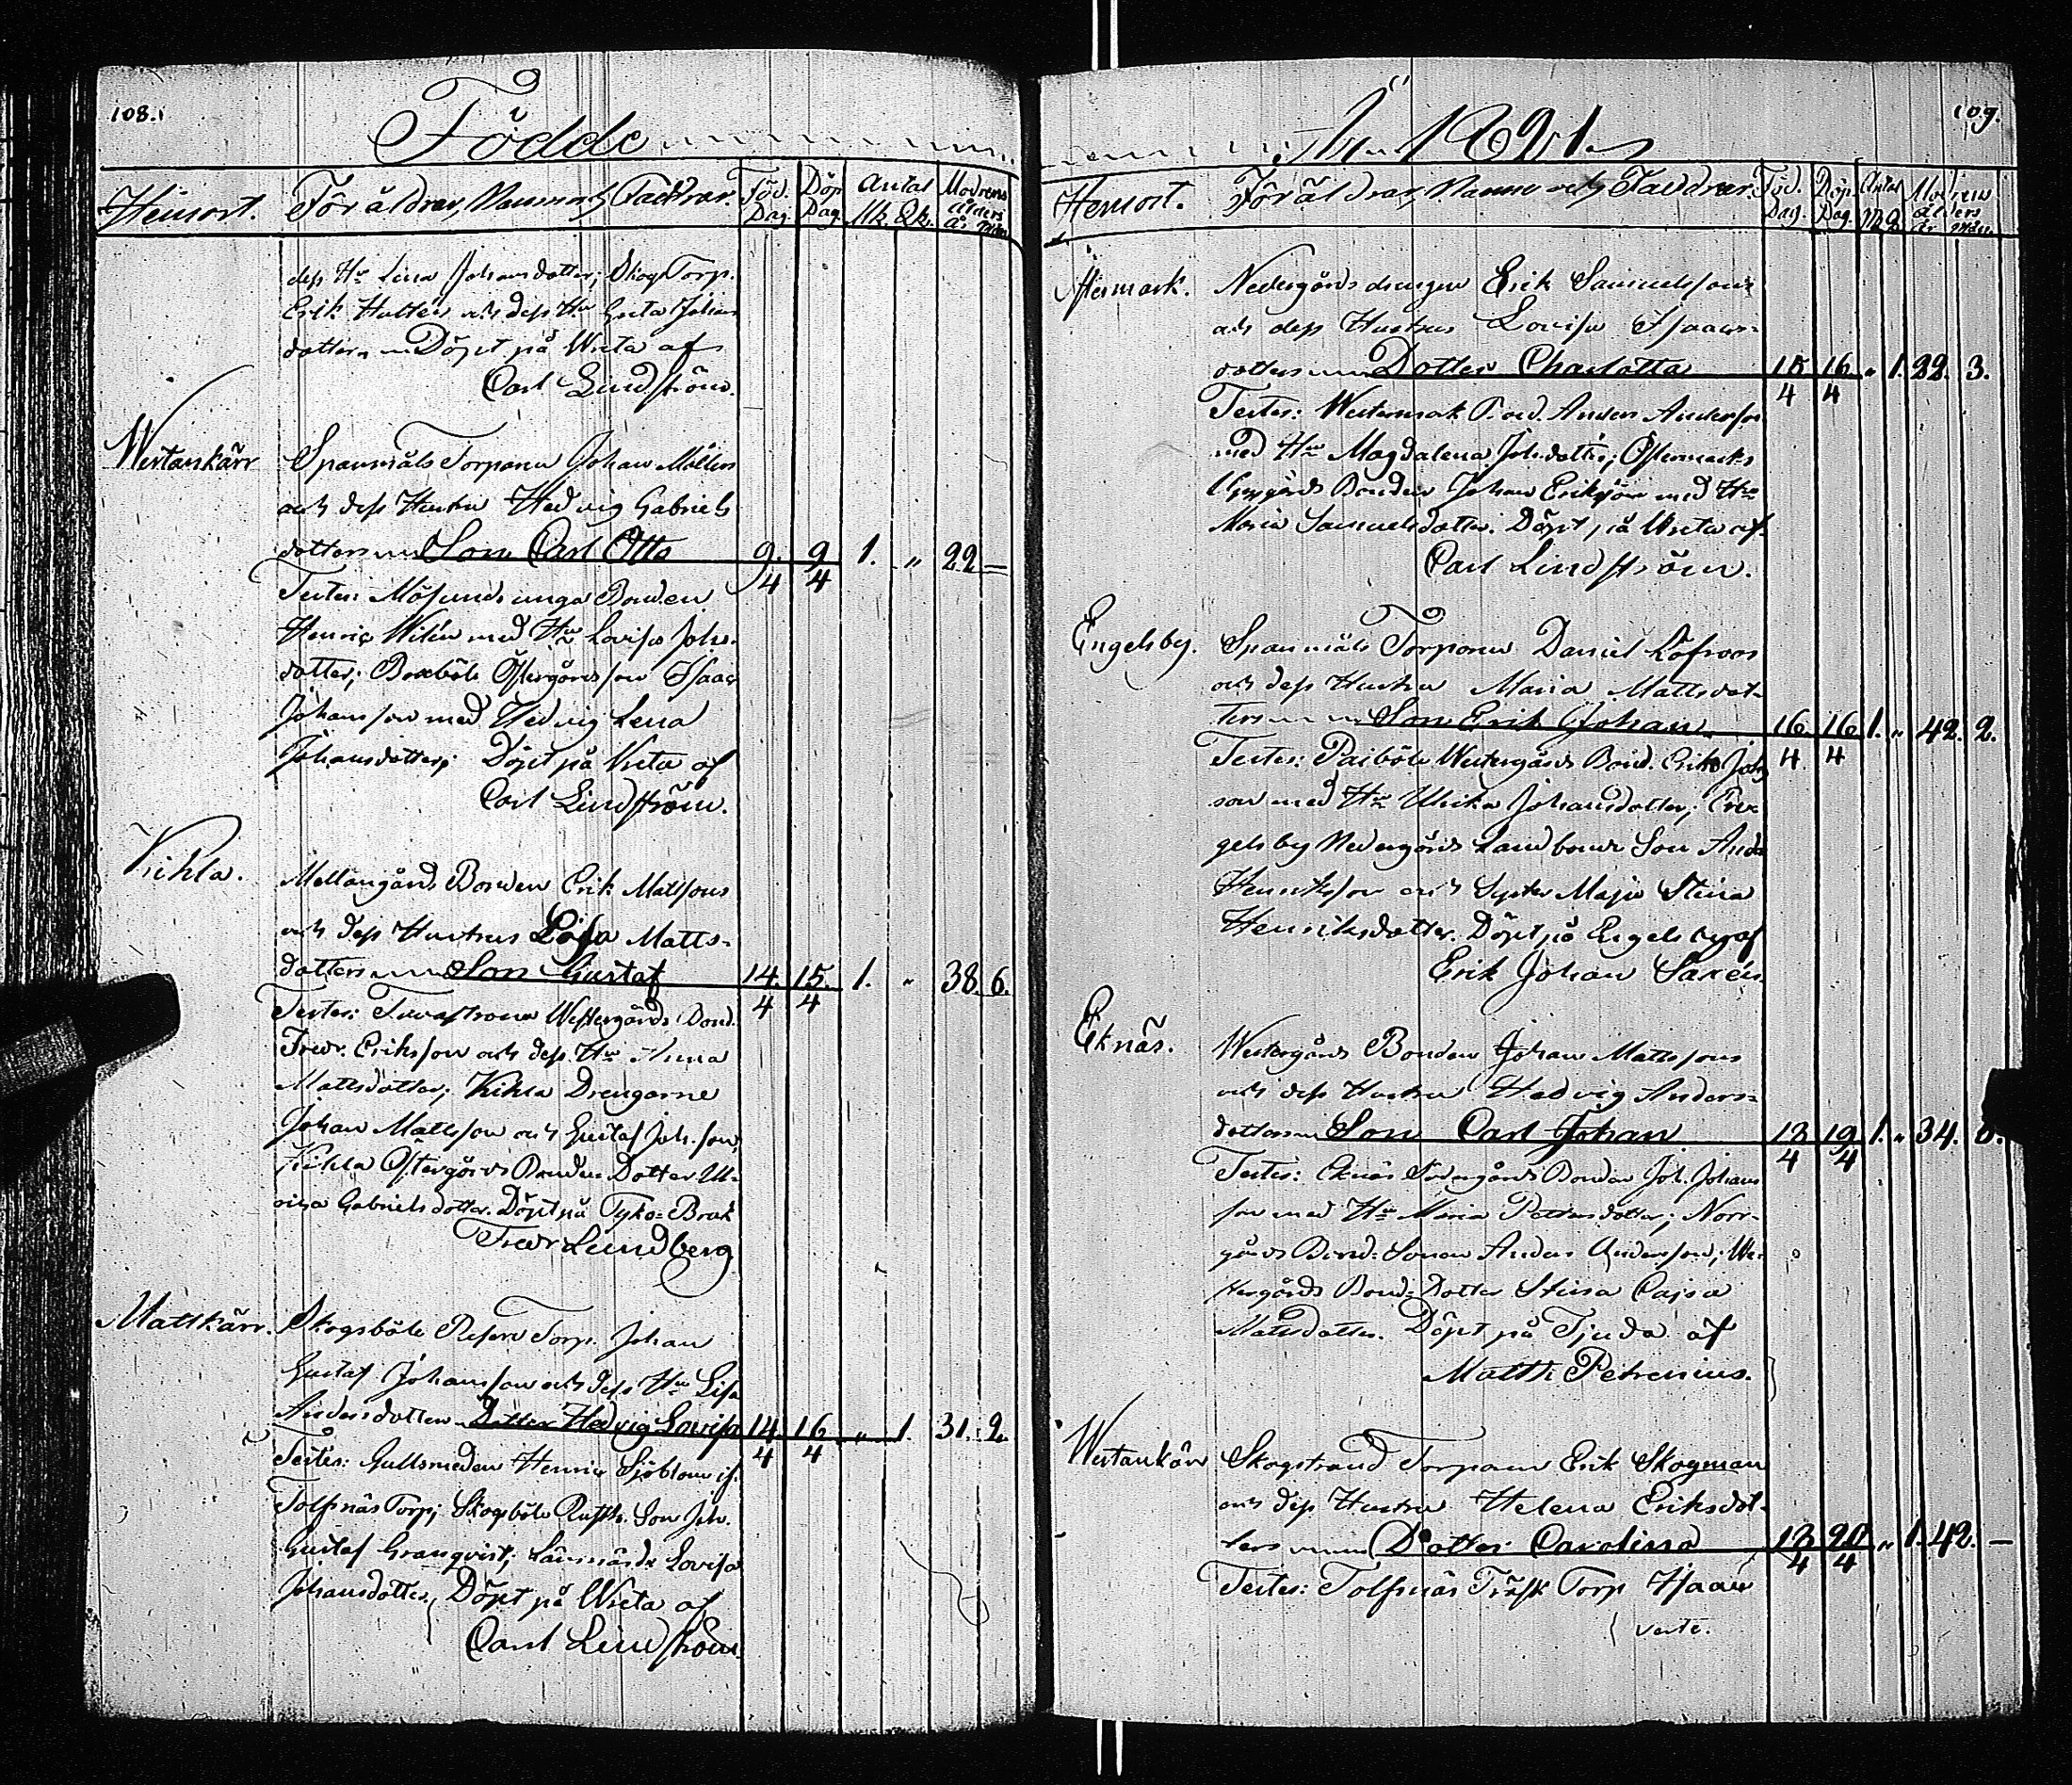 108.
Födde
Hemort. Föräldrar, Namn och Faddrar. Föd. Dag. Döp. Dag. Antal Mk. Qk. Modrens ålders år mån
dess Hu Lena Johansdotter; Skogs Torp.
Erik Hultén och dess Hu Greta Johans
dotter. Döpt på Wreta af
Carl Lindström.
Westankärr Spanmåls Torparen Johan Mölless
och dess Hustru Hedvig Gabriels
dotters Son Carl Otto 9/4 9/4 1. " 22 –
Testes: Mösunds unga Bonden
Henric Wilén med Hu Lovisa Johs.
dotter; Boxböle Östergårds son Isaac
Johansson med Hedvig Lena
Johansdotter; Döpt på Wreta af
Carl Lindström.
Kihla. Mellangårds Bonden Erik Matssons
och dess Hustrus Lisa Matts-
dotters Son Gustaf 14/4 15/4 1. " 38. 6.
Testes: Westergårds Bond.
Fredr. Eriksson och dess Hu Anna
Mattsdotter; Kihla Drengarne
Johan Mattsson och Gustaf Joh.son,
Kihla Östergårds Bonden Dotter Ul-
rica Gabrielsdotter. Döpt på Tyko-Bruk
Fredr Lundberg
Mattkärr. Skogsböle Torp. Johan
Gustaf Johansson och dess Hu Lisa
Andersdotters Dotter Hedvig Lovisa 14/4 16/4 " 1. 31. 2.
Testes: Gullsmeden Henric Sjöblom
Tolfsnäs Torp; Skogsböle Son Joh.
Gustaf Granqvist; Lovisa
Johansdotter, Döpt på Wreta af
Carl Lindström.
109.
År 1821
Hemort. Föräldrar, Namn och Faddrar. Föd. Dag. Döp. Dag. Antal M Q Modrens ålders år mån
Nedergårds drengen Erik Samuelssons
och dess Hustrus Lovisa Isaacs-
dotters Dotter Charlotta 15/4 16/4 " 1. 22. 3.
Testes: Westermark Bond. Anders Andersson
med Hu Magdalena Johsdotter; Östermarks
Bonden Johan Eriksson med Hu
Maria Samuelsdotter. Döpt på Wreta af
Carl Lindström.
Engelsby. Spanmåls Torparen Daniel Löfroos
och dess Hustru Maria Mattsdot-
ters Son Erik Johan. 16/4 16/4 1. " 42. 2.
Testes: Paiböle Westergårds Bond. Erik Johs
son med Hu Ulrika Johansdotter; En-
gelsby Nedergårds Landbonde Son Ands
Henriksson och Syster Maja Stina
Henriksdotter. Döpt på Engelsby af
Erik Johan Saxén.
Eknäs. Westergårds Bonden Johan Mattssons
och dess Hustru Hedvig Anders-
dotters Son Carl Johan 13/4 19/4 1. " 34.
Testes: Eknäs Södergårds Bonden Joh. Johans
son med Hu Maria Pettersdotter; Norr-
gårds Bond: Sonen Anders Andersson; We-
stergårds Bond: Dotter Stina Cajsa
Mattsdotter. Döpt på Tjuda af
Matth: Petrenius.
Westankärr Skogstrand Torparen Erik Skogman
och dess Hustru Helena Eriksdot-
ters Dotter Carolina 13/4 20/4 " 1. 42. –
Testes: Tolfsnäs Träsk Torp Isaac
verte.